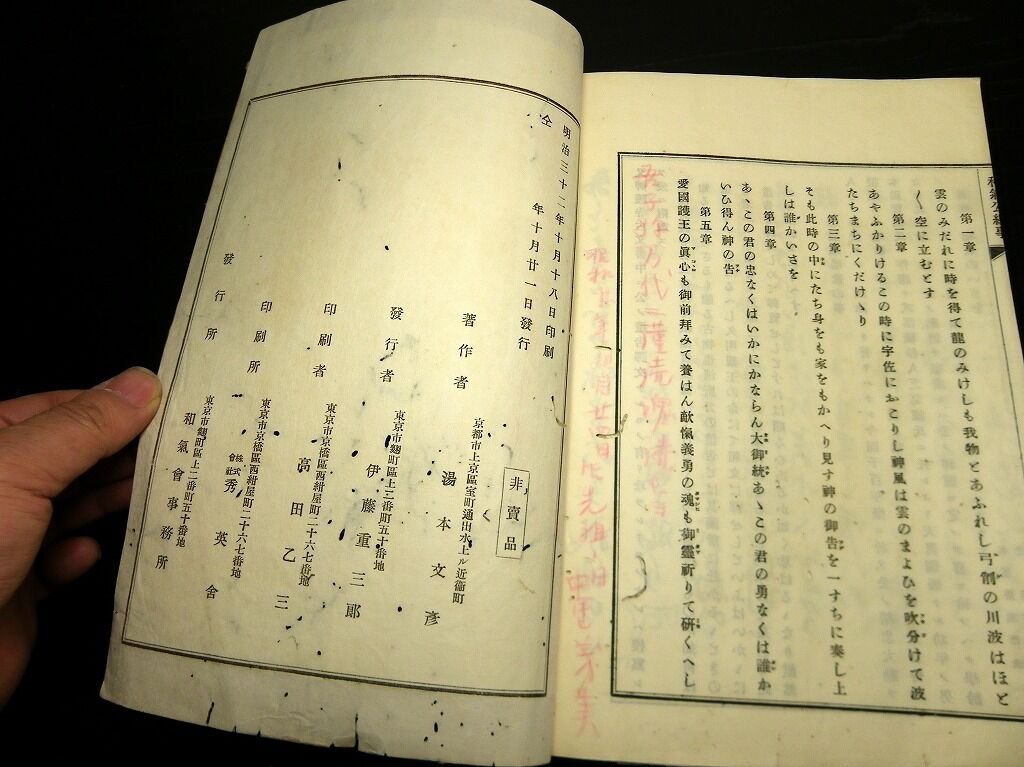 第一章
雲のみだれに時を得て龍のみけしも我物とあふれし弓削の川波はほと
〱空に立むとす
第二章
あやふかりけるこの時に宇佐におこりし神風は雲のまよひを吹分けて波
たちまちにくだけゝり
第三章
そも此時の中にたち身をも家をもかへり見す神の御告を一すちに奏し上
しは誰かいさを
第四章
あゝこの君の忠なくはいかにかならん大御統あゝこの君の勇なくは誰か
いひ得ん神の告
第五章
愛國護王の眞心も御前拜みて養はん敵愾義勇の魂も御靈祈りて研くへし
明治三十二年十月十八日印刷
仝年十月廿一日發行
非賣品
京都市上京區室町通出水上ル近衞町
著作者 湯本文彦
東京市麹町區上二番町五十番地
發行者 伊藤重三郎
東京市京橋區西紺屋町二十六七番地
印刷者 高田乙三
東京市京橋區西紺屋町二十六七番地
印刷所 株式會社秀英舍
東京市麹町區上二番町五十番地
發行所 和氣會事務所